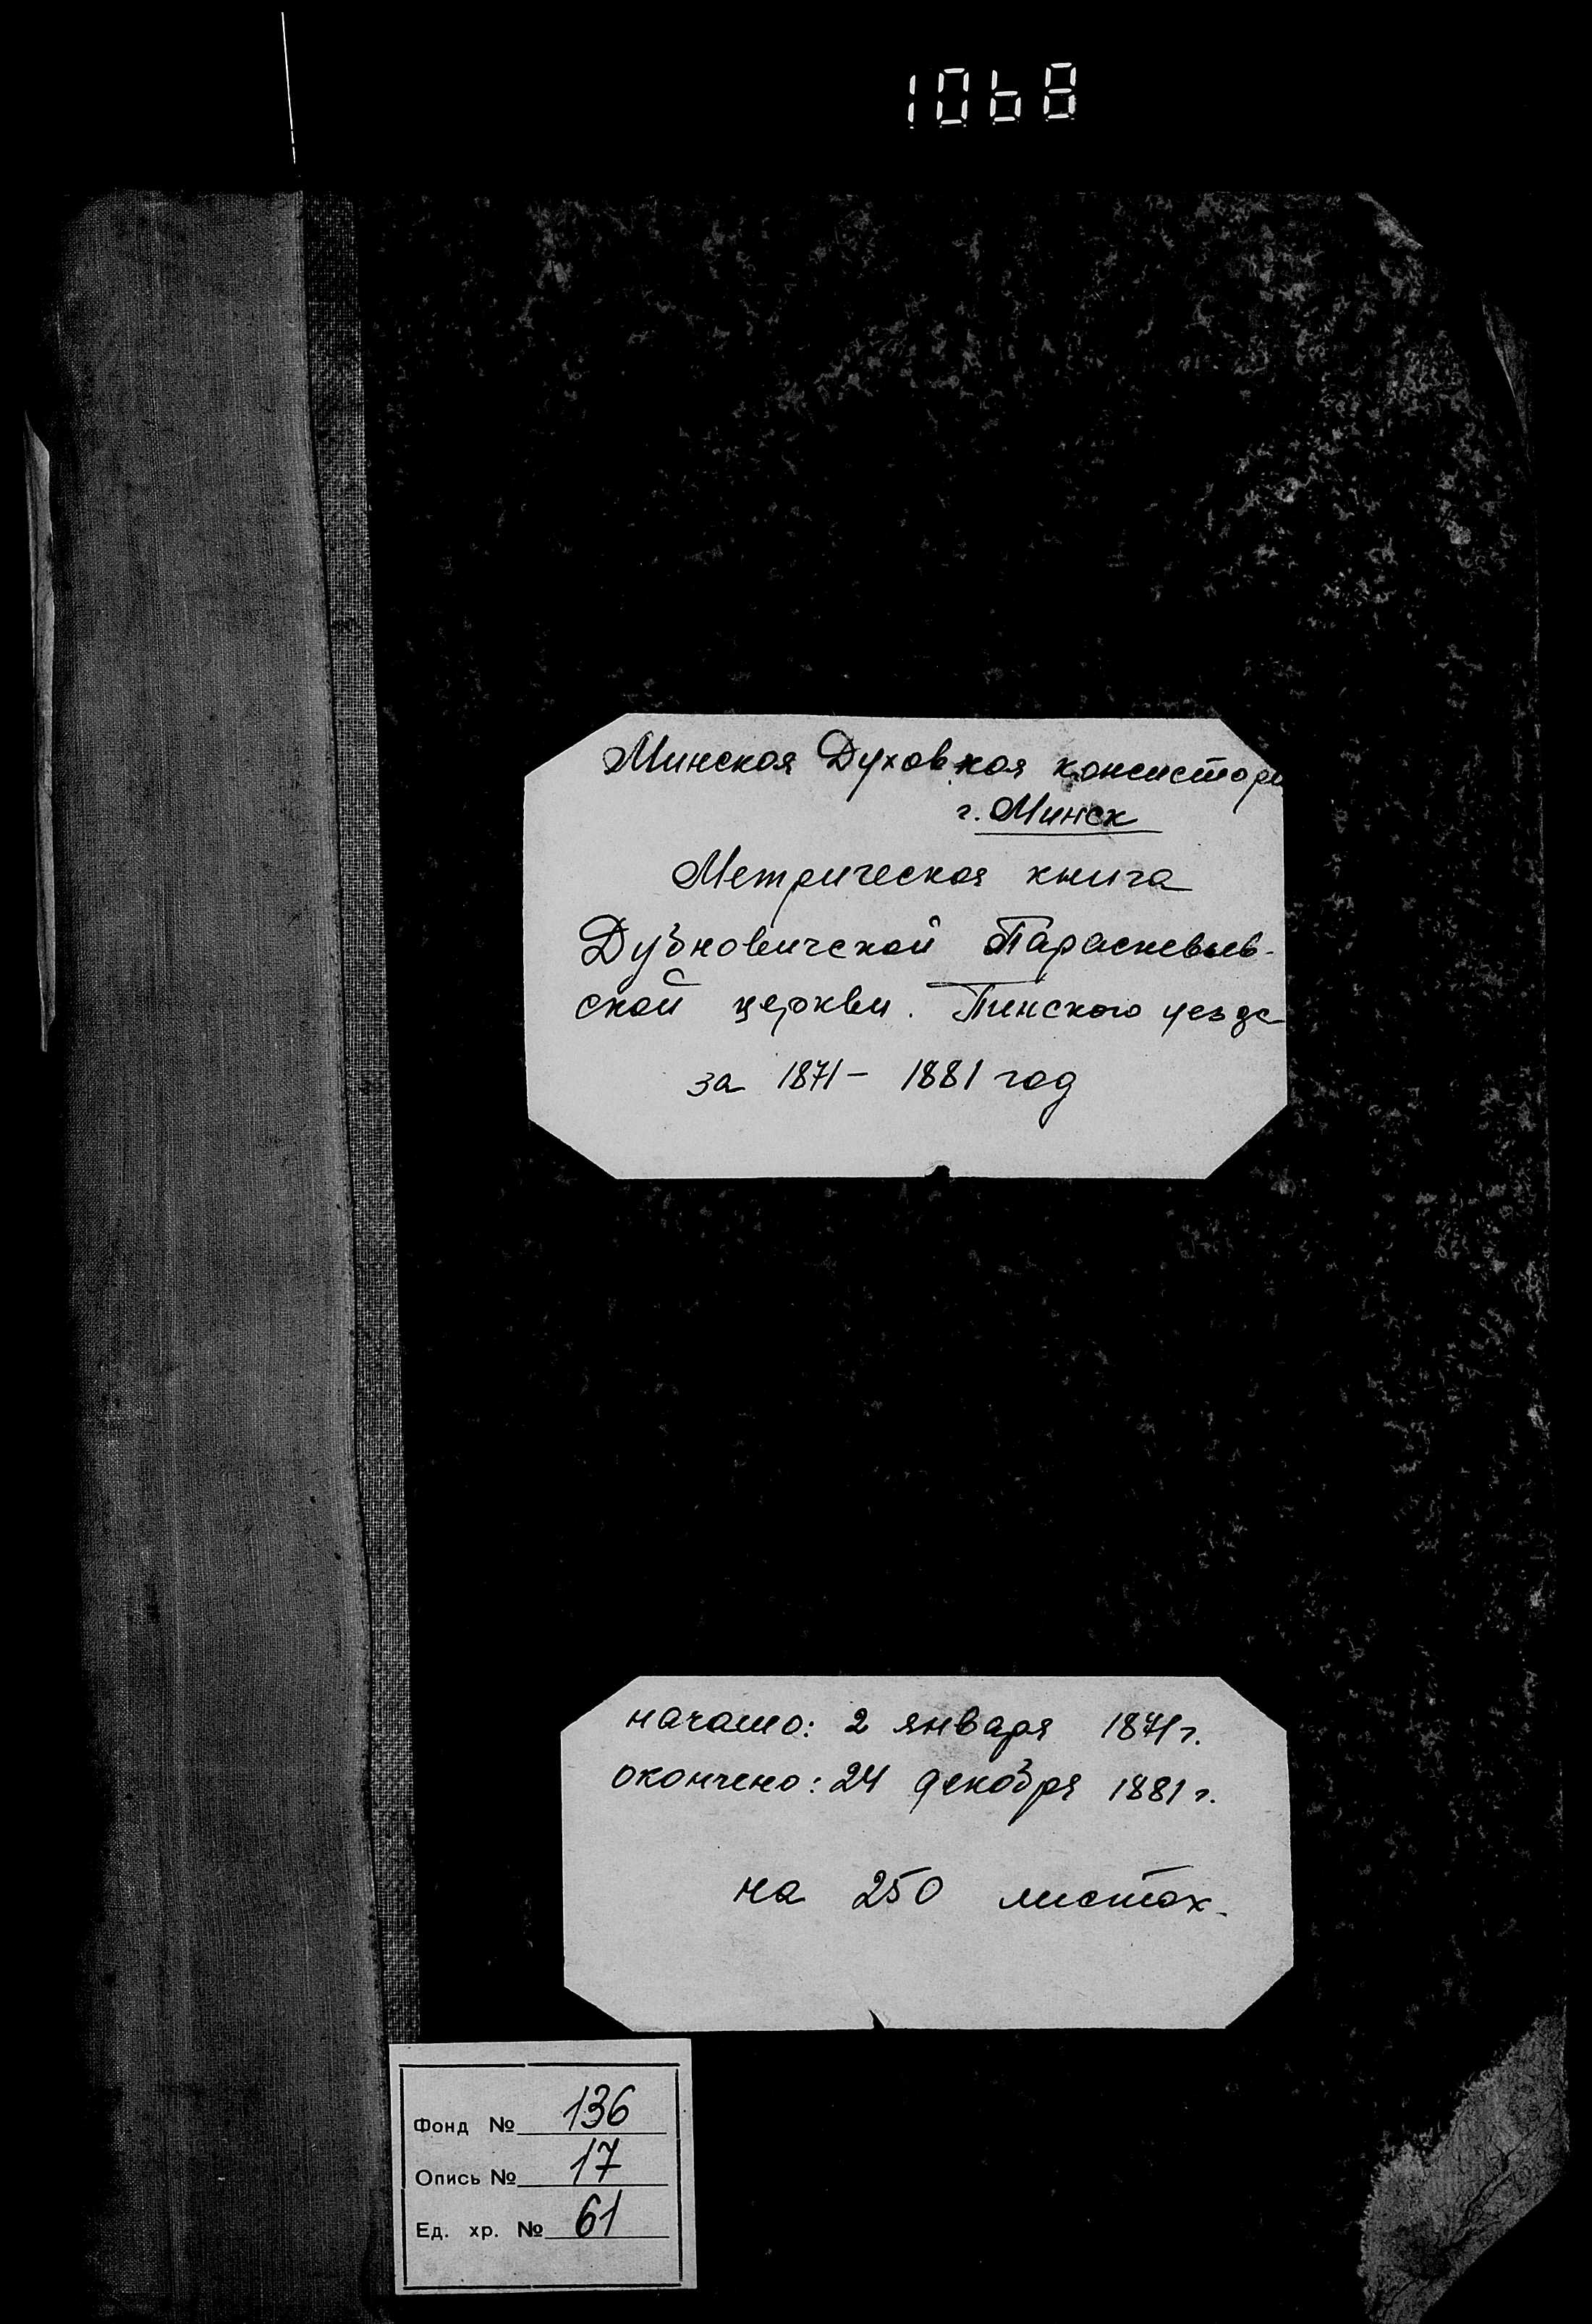 1068
Минская Духовная консистори
г. Минск
Метрическая книга
Дубновичской Параскевьев-
ской церкви. Пинского уезда
за 1871 – 1881 год
начато: 2 января 1871 г.
окончено: 24 декабря 1881 г.
на 250 листах.
Фонд № 136
Опись № 17
Ед. хр. № 61